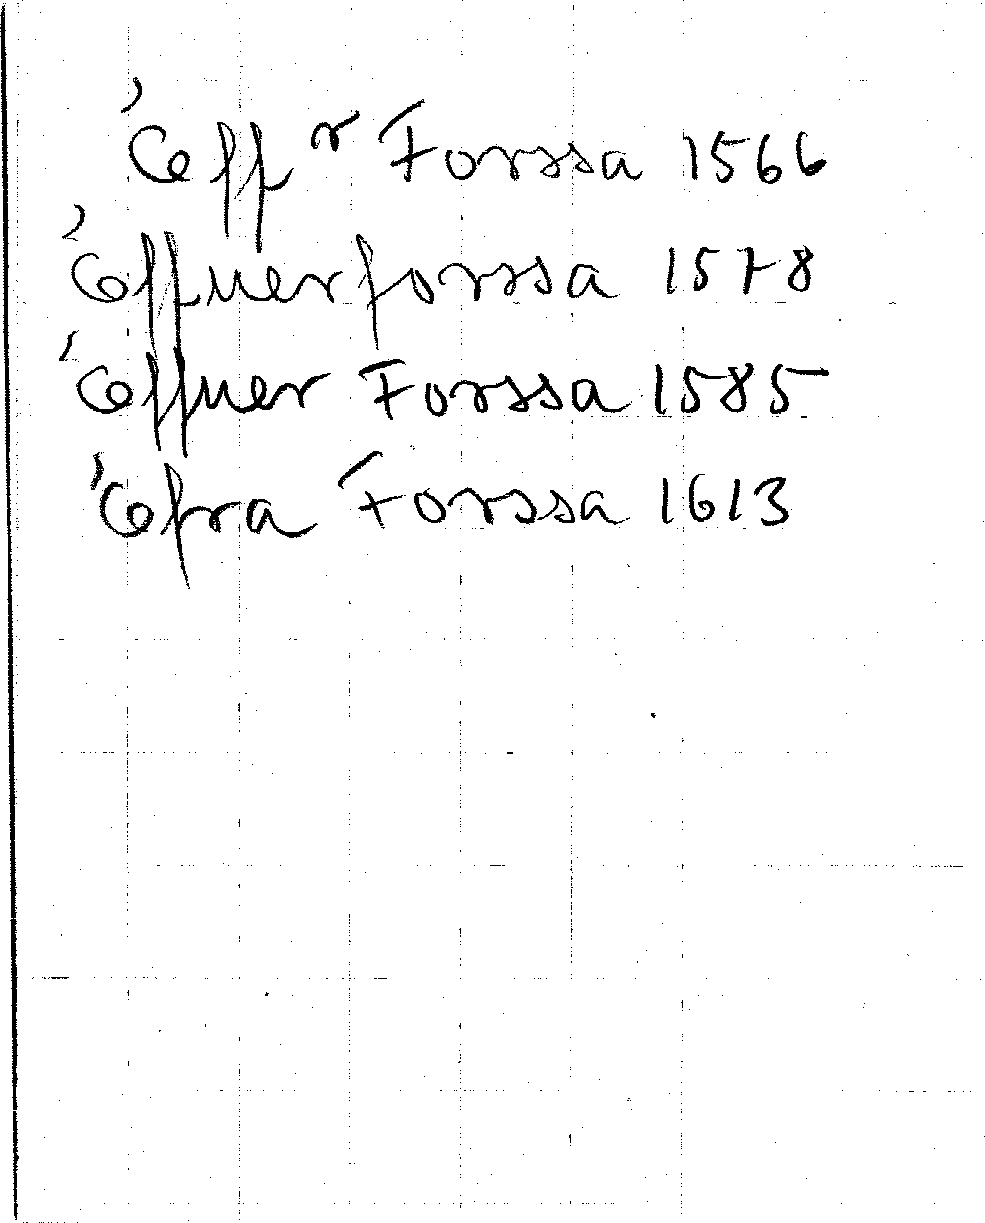 Öffr Forssa 1566
Öffuerforssa 1578
Öffuer Forssa 1585
Öfra Forssa 1613